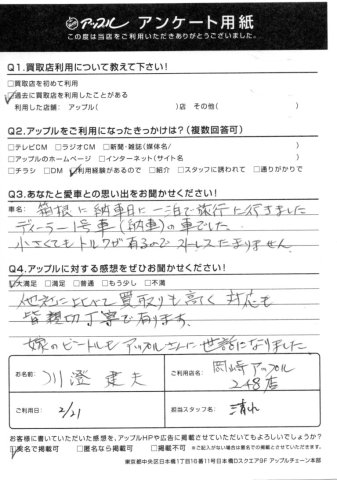 アップル アンケート用紙
この度は当店をご利用いただきありがとうございました。
Q1.買取店利用について教えて下さい!
□買取店を初めて利用
☑過去に買取店を利用したことがある
利用した店舗: アップル( )店 その他( )
Q2.アップルをご利用になったきっかけは?(複数回答可)
□テレビCM □ラジオCM □新聞・雑誌(媒体名/ )
□アップルのホームページ □インターネット(サイト名 )
□チラシ □DM ☑利用経験があるので □紹介 □スタッフに誘われて □通りがかりで
Q3.あなたと愛車との思い出をお聞かせください!
車名: 箱根に納車日に一泊で旅行に行きました
ディーラー1号車(納車)の車でした。
小さくてもトルクが有るのでストレスたまりません。
Q4.アップルに対する感想をぜひお聞かせください!
☑大満足 □満足 □普通 □もう少し □不満
他社にくらべて買取りも高く 対応も
皆親切丁寧で有ります。
嫁のビートルもアップルさんに世話になりました。
お名前: 川澄 建夫
ご利用店名: 岡崎アップル
248店
ご利用日: 2/21
担当スタッフ名: 清水
お客様に書いていただいた感想を、アップルHPや広告に掲載させていただいてもよろしいでしょうか?
☑実名で掲載可 □匿名なら掲載可 □掲載不可 ※ご記入がない場合は匿名での掲載とさせていただきます。
東京都中央区日本橋1丁目10番11号日本橋Dスクエア9F アップルチェーン本部